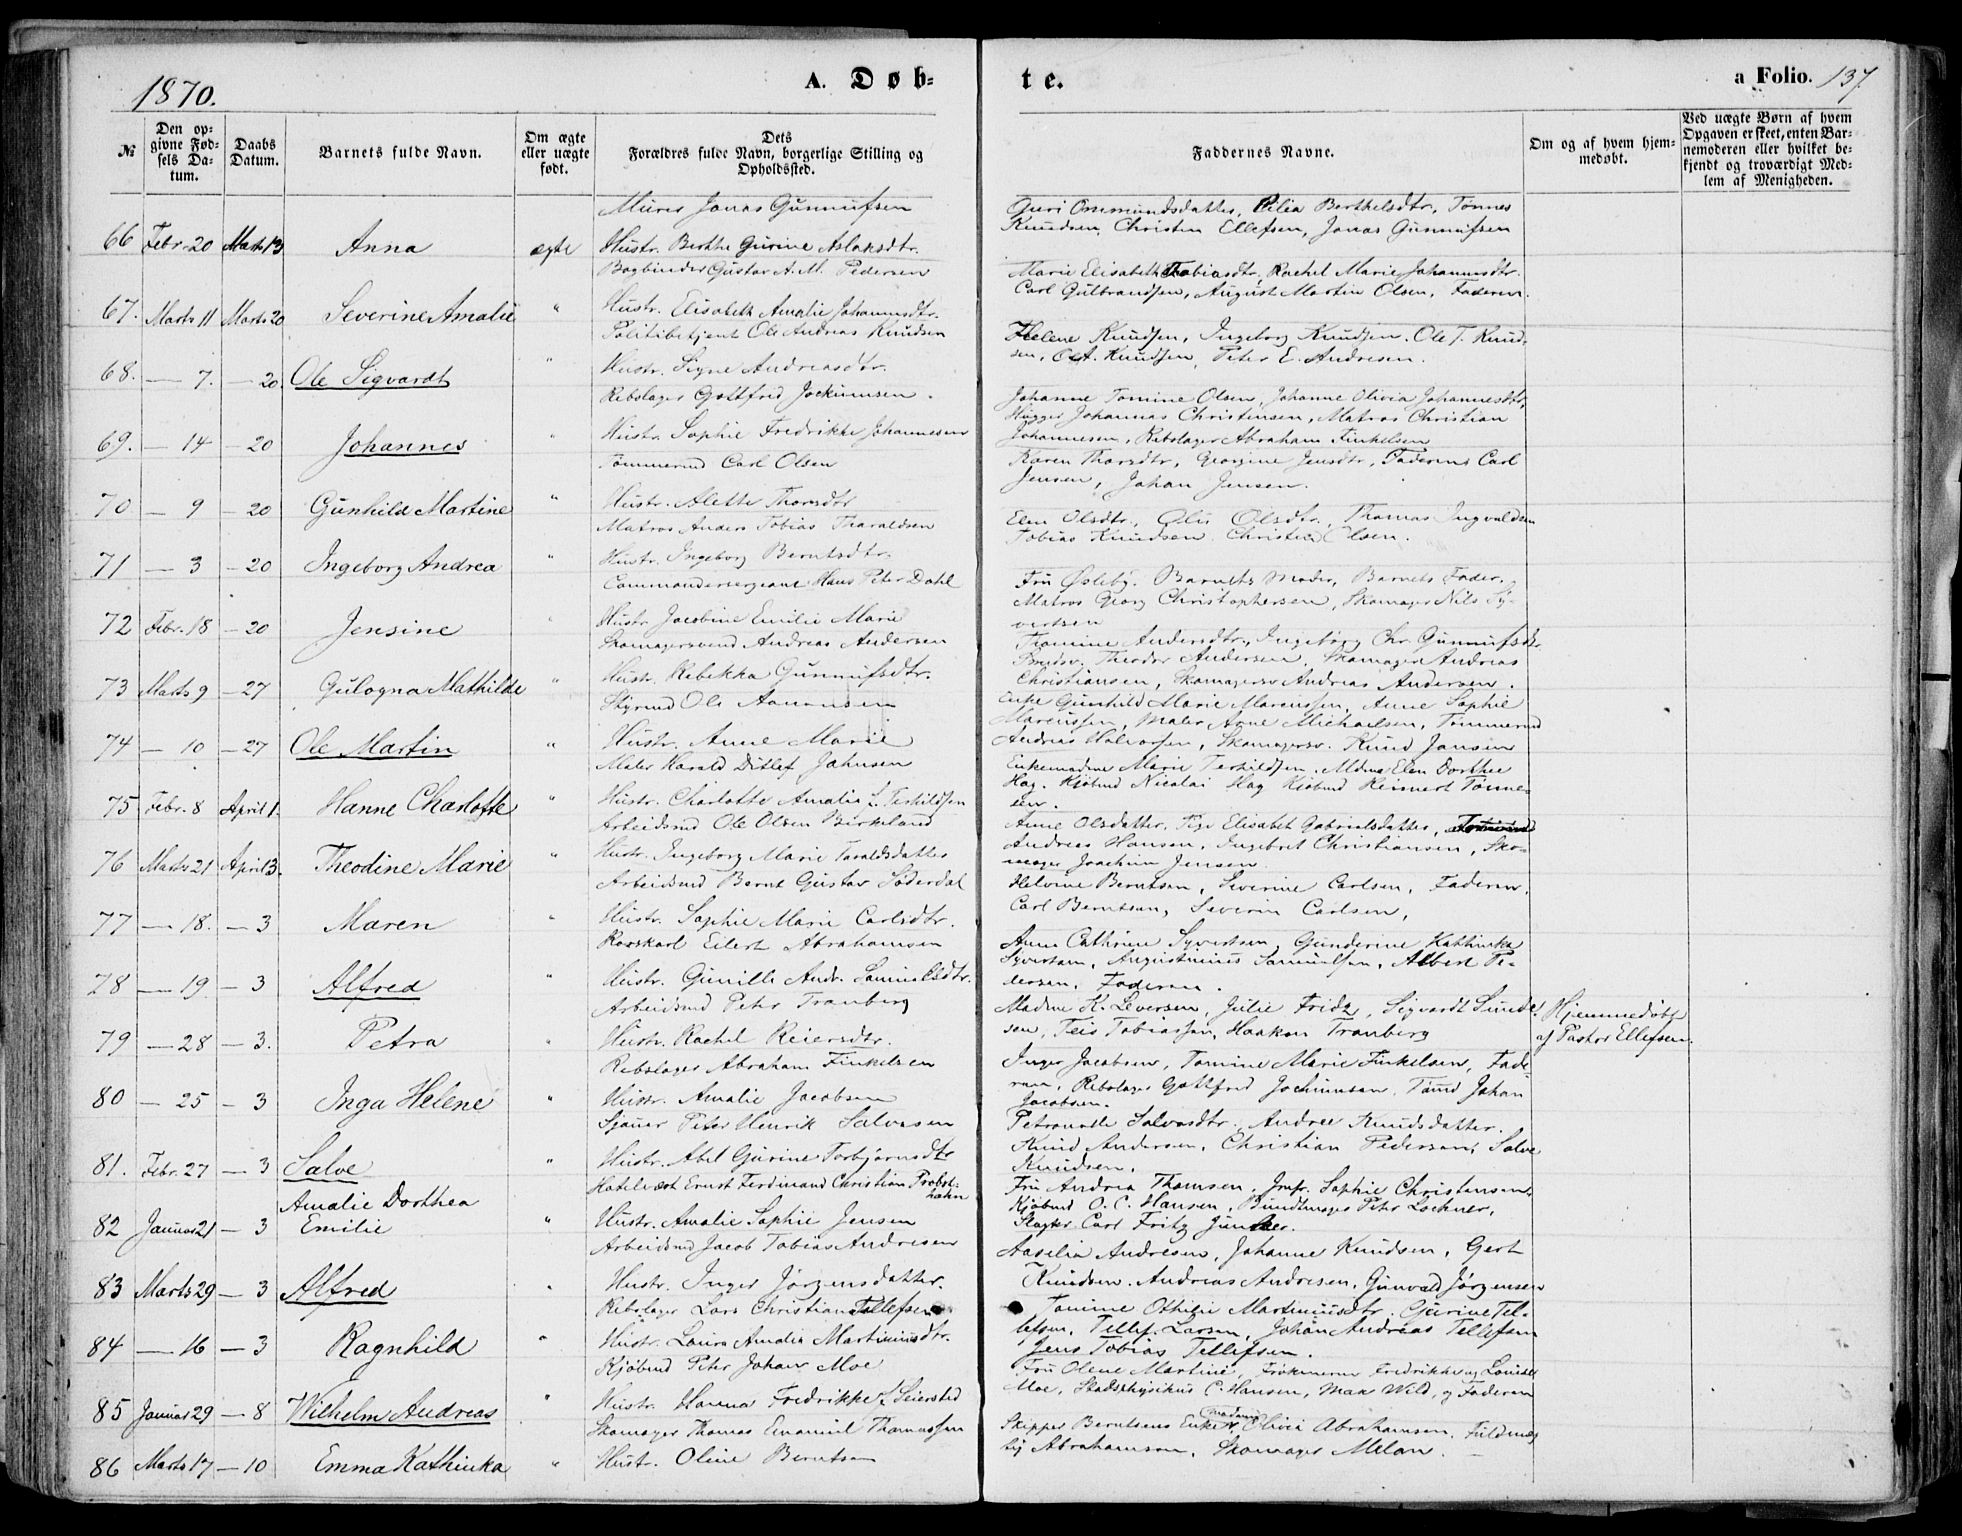 1870.
A. Døb-
te.
a Folio. 137.
№
Den op-
givne Fød-
sels Da-
tum.
Daabs
Datum.
Barnets fulde Navn.
Om ægte
eller uægte
født.
Dets
Forældres fulde Navn, borgerlige Stilling og
Opholdssted.
Faddernes Navne.
Om og af hvem hjem-
medøbt.
Ved uægte Børn af hvem
Opgaven er skeet, enten Bar-
nemoderen eller hvilket be-
kjendt og troværdigt Med-
lem af Menigheden.
Murer Jonas Gunnufsen
66 Febr. 20 Marts 13 Anna ægte Hustr. Berthe Gurine Aslaksdtr.
Guri Ommundsdatter, Cilia Berthelsdtr, Tønnes
Knudsen, Christen Ellefsen, Jonas Gunnufsen
Bogbinder Gustav A. M. Pedersen
67. Marts 11 Marts 20 Severine Amalie " Hustr. Elisabeth Amalie Johannsdtr.
Marie Elisabeth Tobiasdtr, Rachel Marie Johannsdtr.
Carl Gulbrandsen, August Martin Olsen, Faderen.
Politibetjent Ole Andreas Knudsen
68. — 7. — 20. Ole Sigvardt " Hustr. Signe Andreasdtr.
Helene Knudsen, Ingeborg Knudsen. Ole T. Knud-
sen, O. A. Knudsen, Peter E. Andresen.
Rebslager Gottfried Jochumsen.
69. — 14 — 20 Johannes " Hustr. Sophie Fredrikke Johannesen
Johanne Tomine Olsen, Johanne Olivia Johannesdtr,
Hugger Johannas Christensen, Matros Christian
Johannesen, Rebslager Abraham Finkelsen
Tømmermd Carl Olsen
70 — 9 — 20 Gunhild Martine " Hustr. Alette Thorsdtr
Karen Thorsdtr, Georgine Jensdtr, Faderen Carl
Jensen, Johan Jensen.
Matros Anders Tobias Tharaldsen
71 — 3 — 20 Ingeborg Andrea " Hustr. Ingeborg Berntsdtr.
Elen Olsdtr., Olis Olsdtr., Thomas Ingvaldsen
Tobias Knudsen. Christen Olsen.
Commandersergeant Hans Peter Dahl
72 Febr. 18 — 20 Jensine " Hustr Jacobine Emilie Marie
Fru Øsleby. Barnets Moder, Barnets Fader.
Matros Georg Christophersen, Skomager Nils Sy-
vertsen
Skomagersvend Andreas Andersen
73 Marts 9 — 27 Gulogna Mathilde " Hustr. Rebekka Gunnufsdtr.
Tomine Andersdtr., Ingeborg Chr. Gunnufsdtr
Theodor Andersen, Skomager Andreas
Christiansen, Skomagersv Andreas Andersen.
Styrmd Ole Aanonsen
74 — 10 — 27 Ole Martin " Hustr. Anne Marie
Enke Gunhild Marie Marcussen, Anne Sophie
Marcussen, Maler Arne Michaelsen, Tømmermd
Andreas Halvorsen, Skomagersv. Knud Jansen
Maler Harald Ditlef Jahnsen
75 Febr. 8 April 1. Hanne Charlotte " Hustr. Charlotte Amalia f. Terkildsen
Enkemadme Marie Terkildsen. Mdme Elen Dorthea
Hag. Kjøbmd Nicolai Hag Kjøbmd Reinert Tønne-
sen.
Arbeidsmd Ole Olsen Birkeland
76 Marts 21 April 3. Theodine Marie " Hustr. Ingeborg Marie Taraldsdatter
Anne Olsdatter, Pige Elisabet Gabrielsdatter,
Andreas Hansen, Ingebret Christiansen, Sko-
mager Joachim Jensen.
Arbeidsmd Bernt Gustav Söderdal
77 — 18. — 3 Maren " Hustr. Sophie Marie Carlsdtr.
Helvine Berntsen, Severine Carlsen, Faderen,
Carl Berntsen, Severin Carlsen,
Rorskarl Eilert Abrahamsen
78 — 19 — 3 Alfred " Hustr. Gunille Andr. Samuelsdtr.
Anne Cathrine Syvertsen, Gunderine Kathinka
Syvertsen, Augustinius Samuelsen, Albert Pe-
dersen, Faderen.
Arbeidsmd Peter Tranberg
79 — 28 — 3. Petra " Hustr. Rachel Reiersdtr.
Madme K. Leversen, Julie Fridz, Sigvardt Sunde-
sen, Teis Tobiassen, Haakon Tranberg
Hjemmedøbt
af Pastor Ellefsen.
Rebslager Abraham Finkelsen
80 — 25 — 3 Inga Helene " Hustr. Amalie Jacobsen
Inger Jacobsen, Tomine Marie Finkelsen, Fade-
ren, Rebslager Gottfred Jochumsen, Tømd Johan
Jacobsen.
Sjouer Peter Henrik Salvesen
81. Febr. 27 — 3 Salve " Hustr. Abel Gurine Torbjørnsdtr
Petronelle Salvesdtr. Andrea Knudsdatter.
Knud Andersen, Christian Pedersen, Salve
Knudsen.
Hotelvært Ernst Ferdinand Christian Probst-
hahn
82 Januar 21 — 3 Amalie Dorthea
Emilie " Hustr. Amalie Sophie Jensen
Fru Andrea Thomsen, Jmfr. Sophie Christensen,
Kjøbmd O. C. Hansen, Bundtmager Peter Lochner,
Slagter Carl Fritz Juncker.
Arbeidsmd Jacob Tobias Andresen
83 Marts 29 — 3 Alfred " Hustr. Inger Jörgensdatter.
Aasilia Andresen, Johanne Knudsen, Gert
Knudsen. Andreas Andresen, Gunvald Jörgensen
Rebslager Lars Christian Tellefsen
84 — 16 — 3 Ragnhild " Hustr. Laura Amalia Martiniusdtr.
Tomine Othilie Martiniusdtr. Gurine Tel-
lefsen, Tellef Larsen, Johan Andreas Tellefsen
Jens Tobias Tellefsen.
Kjøbmd Peter Johan Moe
85 Januar 29 — 8 Wilhelm Andreas " Hustr. Hanna Fredrikke f. Seiersted
Fru Olene Martine, Frøknerne Fredrikke og Louise
Moe, Stadsphysikus C. Hansen, Max Wild, og Faderen
Skomager Thomas Emanuel Thomassen
86 Marts 17 — 10 Emma Kathinka " Hustr. Oline Berntsen
Skipper Berntsens Enke, Madme Olivia Abrahamsen, Fuldmæg-
tig Abrahamsen, Skomager Melan.